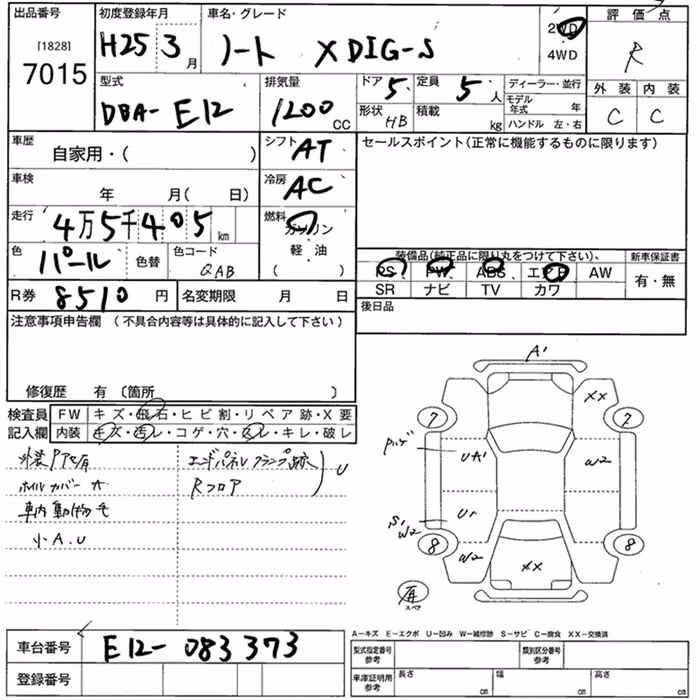 出品番号 初度登録年月 車名・グレード 評価点
[1828]
7015 H25 3月 ノート X DIG-S 2WD 4WD R
型式 排気量 ドア 定員 ディーラー・並行 外装 内装
DBA- E12 1200 CC 5 5人 モデル年式 年 C C
形状 HB 積載 kg ハンドル 左・右
車歴 自家用・( ) シフト AT セールスポイント(正常に機能するものに限ります)
車検 年 月( 日) 冷房 AC
走行 4万5千405 km 燃料 ガソリン
軽・油
( )
色 パール 色替 色コード QAB
装備品(純正品に限り丸をつけて下さい)、 新車保証書
PS PW ABS エアB AW 有・無
SR ナビ TV カワ
R券 8510円 名変期限 月 日 後日品
注意事項申告欄 (不具合内容等は具体的に記入して下さい)
修復歴 有 〔箇所 〕
検査員 FW キズ・飛石・ヒビ割・リペア跡・X要
記入欄 内装 キズ・汚レ・コゲ・穴・スレ・キレ・破レ
ホイルカバー
車内動物毛 Rフロア U
小A.U
A'
XX
7 2
UA' W2
U1
S' W2
8 8
W2
XX
有
スペア
A−キズ E−エクボ U−凹み W−補修跡 S−サビ C−腐食 XX−交換済
車台番号 E12- 083373 型式指定番号 参考 類別区分番号 参考
登録番号 車庫証明用 参考 長さ cm 幅 cm 高さ cm